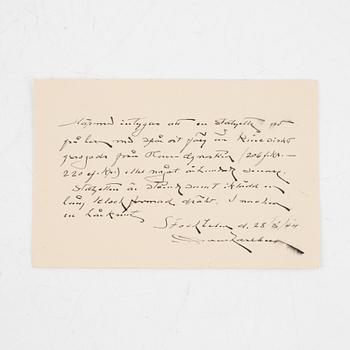 Härmed intygas att en statyett av
på ler med spår vit färg är Kinesiskt
gravgods från Han-dynastien (206 f.kr.—
220 ef. Kr.) eller något århundrade senare.
Statyetten är stående samt iklädd en
lång klockformad dräkt. I nacken
en hårknut.
Stockholm d. 28/2/44